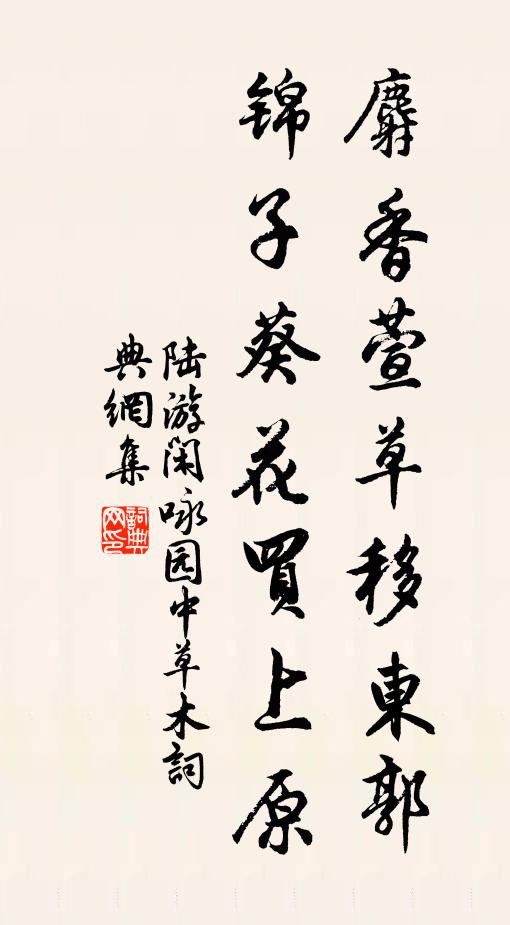 麝香萱草移東郭
锦子葵花買上原
陆游闲咏园中草木詞
典網集
詞典
网印